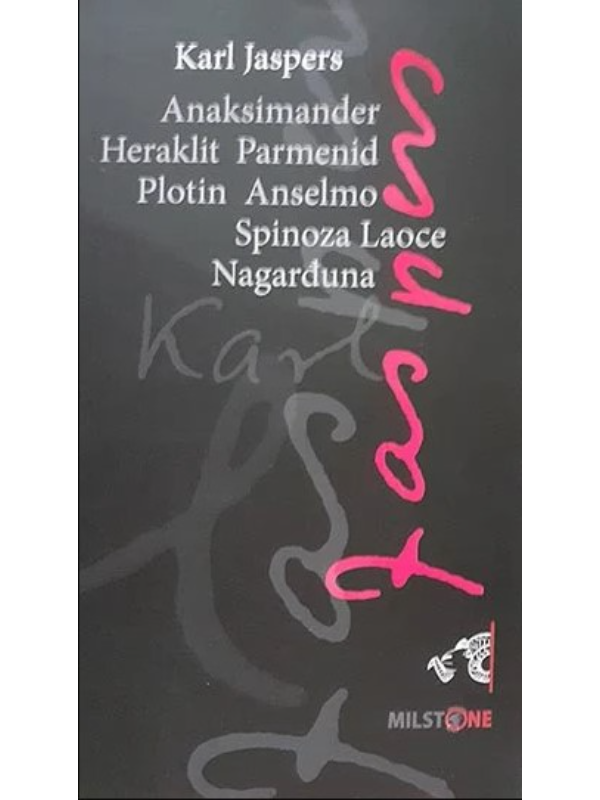 Karl Jaspers
Anaksimander
Heraklit Parmenid
Plotin Anselmo
Spinoza Laoce
Nagarđuna
Karl
Jaspers
Jaspers
MILSTONE